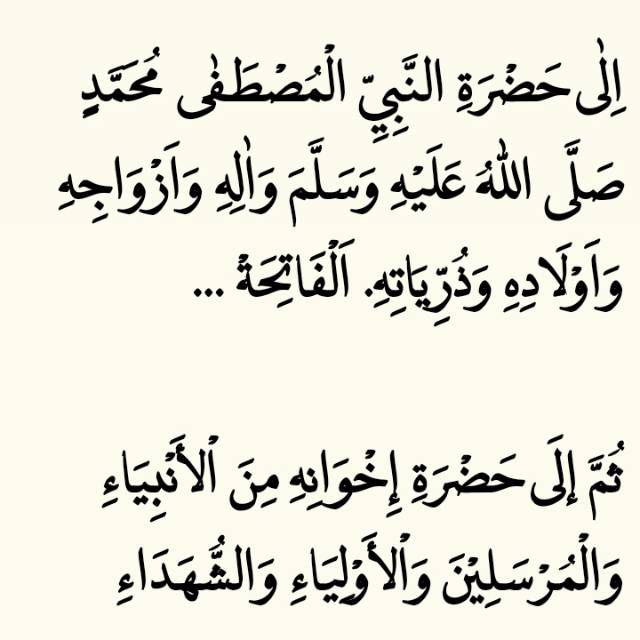 اِلٰى حَضْرَةِ النَّبِيِّ الْمُصْطَفٰى مُحَمَّدٍ
صَلَّى اللهُ عَلَيْهِ وَسَلَّمَ وَاٰلِهِ وَاَزْوَاجِهِ
وَاَوْلَادِهِ وَذُرِّيَاتِهِ. اَلْفَاتِحَةْ ...
ثُمَّ إلَى حَضْرَةِ إِخْوَانِهِ مِنَ اْلأَنْبِيَاءِ
وَالْمُرْسَلِيْنَ وَاْلأَوْلِيَاءِ وَالشُّهَدَاءِ